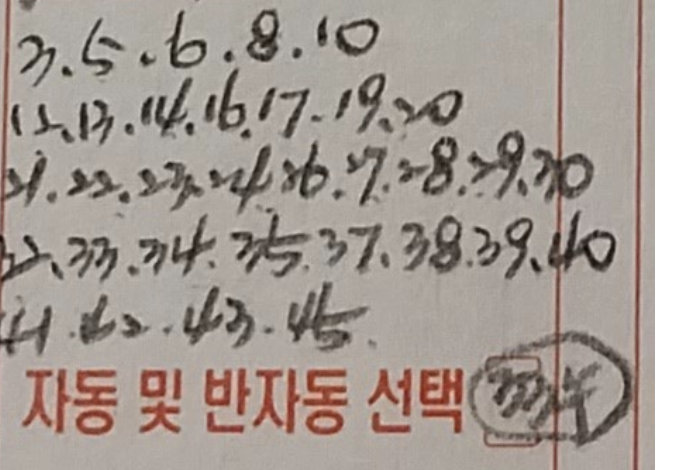 3.5.6.8.10
12.13.14.16.17.19.20
21.22.23.24.26.27.28.29.30
32.33.34.35.37.38.39.40
41.42.43.45.
자동 및 반자동 선택 33수